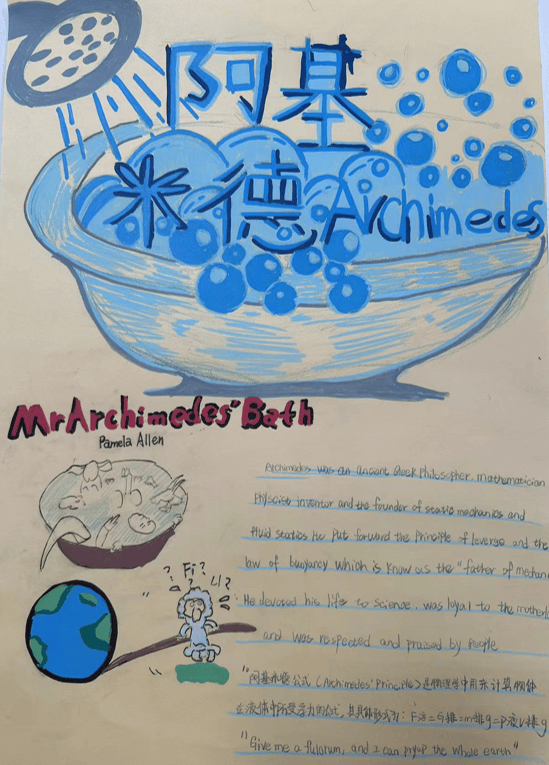 阿基
米德 Archimedes
Mr Archimedes' Bath
Pamela Allen
? Fi? ?
? Li?
Archimedes was an ancient Greek Philosopher, mathematician
Physcist inventor and the founder of static mechanics and
fluid statics He put forward the principle of leverse and the
law of buoyancy which is know as the "father of mechan
He devored his life to science, was loyal to the motherla
and was respected and praised by people
"阿基米德公式(Archimedes' Principle)是物理学中用来计算物体
在液体中所受浮力的公式,其具体形式为:F浮=G排=m排g=ρ液V排g
"Give me a fulcrum, and I can pryup the whole earth"